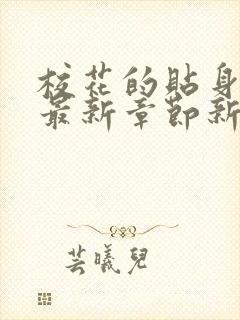 校花的貼身
最新章節新
芸曦兒